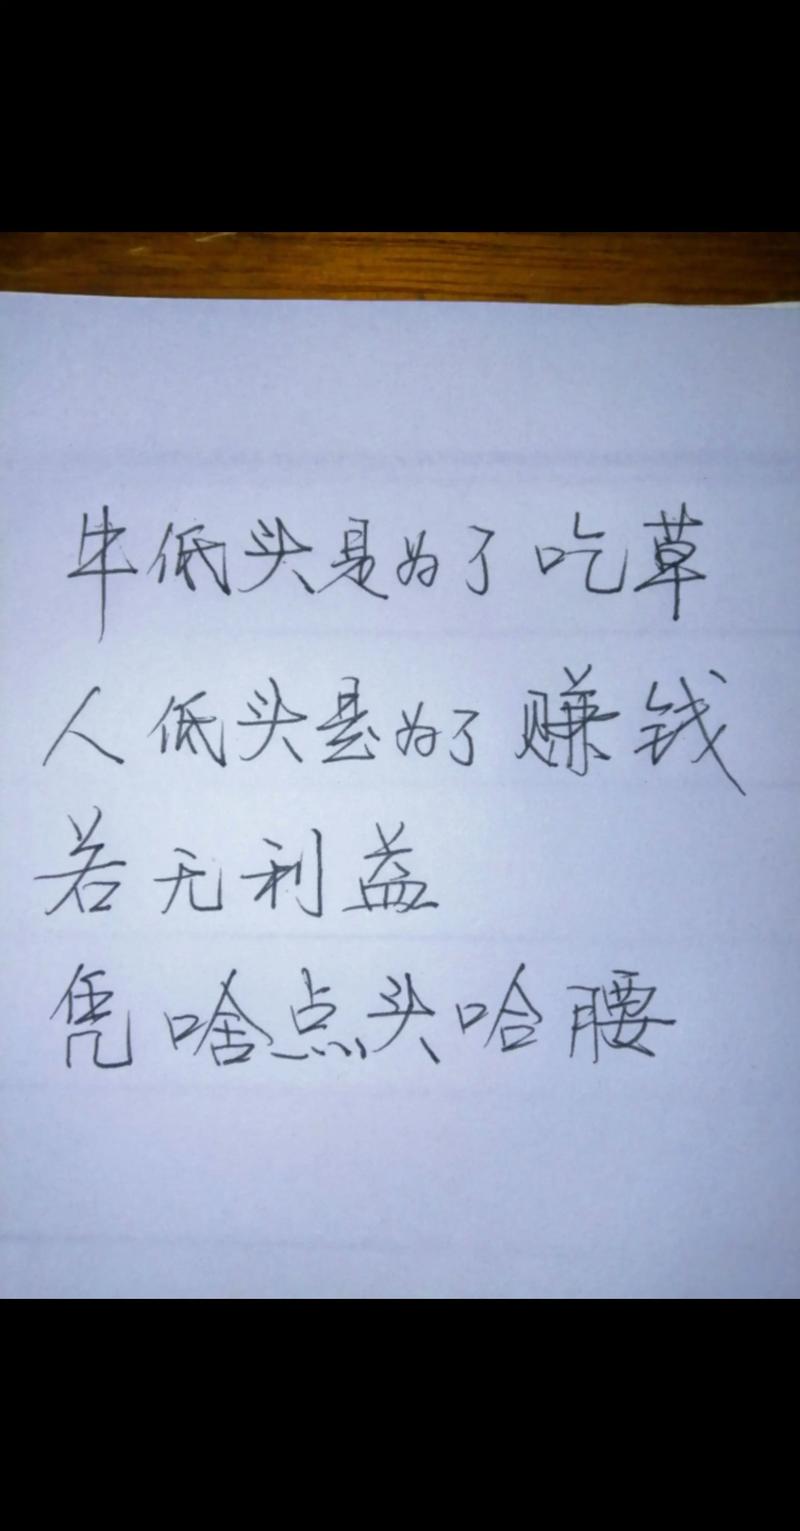 牛低头是为了吃草
人低头是为了赚钱
若无利益
凭啥点头哈腰